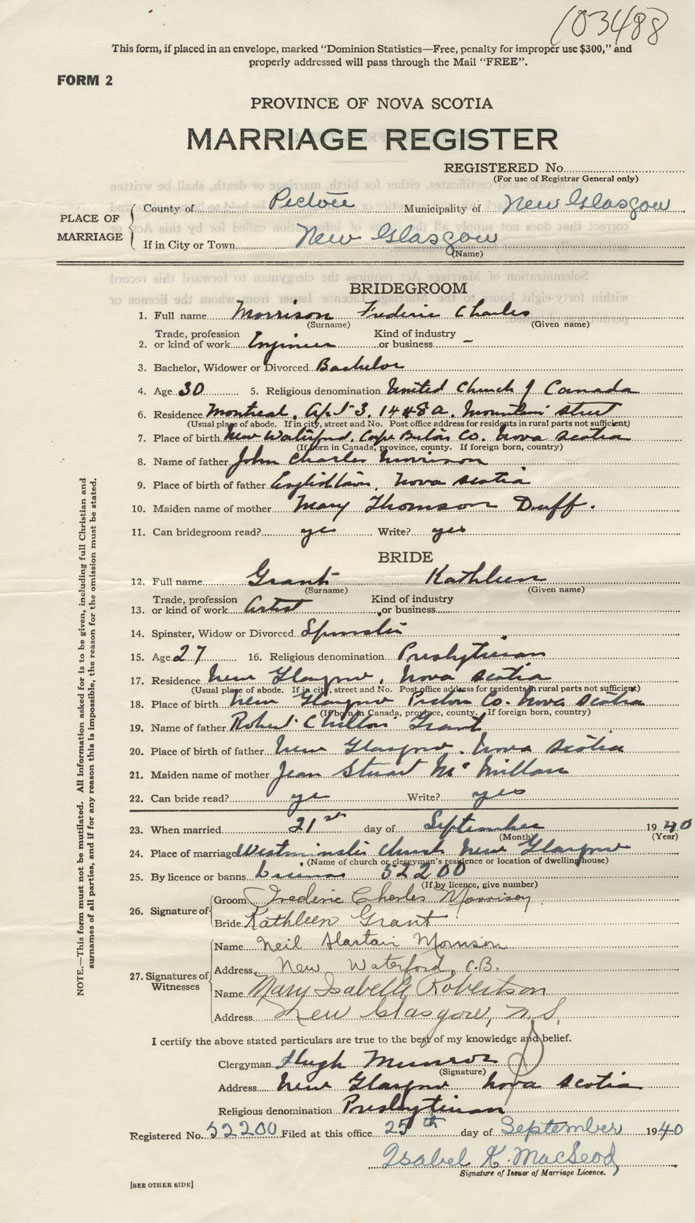 103488
This form, if placed in an envelope, marked "Dominion Statistics—Free, penalty for improper use $300," and
properly addressed will pass through the Mail "FREE".
FORM 2
PROVINCE OF NOVA SCOTIA
MARRIAGE REGISTER
REGISTERED No.
(For use of Registrar General only)
PLACE OF MARRIAGE
County of Pictou Municipality of New Glasgow
If in City or Town New Glasgow
(Name)
BRIDEGROOM
1. Full name Morrison Frederic Charles
(Surname) (Given name)
Trade, profession Kind of industry
2. or kind of work Engineer or business –
3. Bachelor, Widower or Divorced Bachelor
4. Age 30 5. Religious denomination United Church of Canada
6. Residence Montreal, Apt 3, 1448a, Mountain Street
(Usual place of abode. If in city, street and No. Post office address for residents in rural parts not sufficient)
7. Place of birth New Waterford, Cape Breton Co. Nova Scotia
(If born in Canada, province, county. If foreign born, country)
8. Name of father John Charles Morrison
9. Place of birth of father Nova Scotia
10. Maiden name of mother Mary Thomson Duff.
11. Can bridegroom read? yes Write? yes
BRIDE
12. Full name Grant Kathleen
(Surname) (Given name)
Trade, profession Kind of industry
13. or kind of work Artist or business
14. Spinster, Widow or Divorced Spinster
15. Age 27 16. Religious denomination Presbyterian
17. Residence New Glasgow, Nova Scotia
(Usual place of abode. If in city, street and No. Post office address for residents in rural parts not sufficient)
18. Place of birth New Glasgow Pictou Co. Nova Scotia
(If born in Canada, province, county. If foreign born, country)
19. Name of father Robert Grant
20. Place of birth of father New Glasgow. Nova Scotia
21. Maiden name of mother Jean Stuart McMillan
22. Can bride read? yes Write? yes
23. When married 21st day of September 1940
(Month) (Year)
24. Place of marriage Westminster Church New Glasgow
(Name of church or clergyman's residence or location of dwelling house)
25. By licence or banns License 52200
(If by licence, give number)
26. Signature of
Groom Frederic Charles Morrison
Bride Kathleen Grant
27. Signatures of Witnesses
Name Neil Alastair Morrison
Address New Waterford, C.B.
Name Mary Isabelle Robertson
Address New Glasgow, N.S.
I certify the above stated particulars are true to the best of my knowledge and belief.
Clergyman Hugh Munroe
(Signature)
Address New Glasgow Nova Scotia
Religious denomination Presbyterian
Registered No. 52200 Filed at this office 25th day of September 1940
Isabel K. MacLeod
Signature of Issuer of Marriage Licence.
[SEE OTHER SIDE]
NOTE.—This form must not be mutilated. All information asked for is to be given, including full Christian and
surnames of all parties, and if for any reason this is impossible, the reason for the omission must be stated.